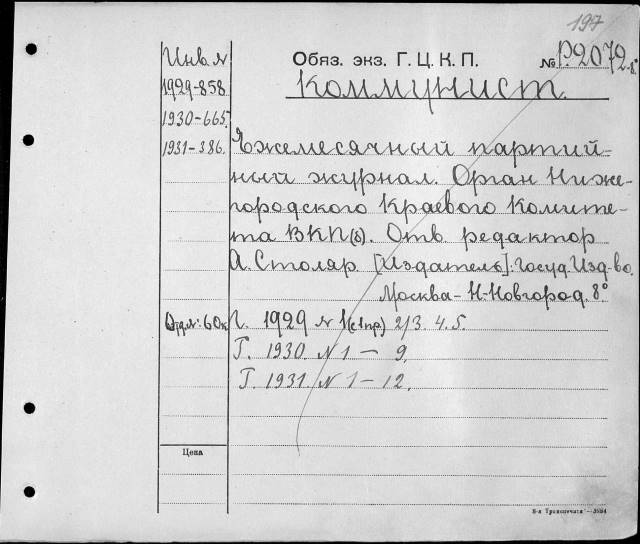 197
Инв. №
Обяз. экз. Г. Ц. К. П. № P.2072.8°
1929-858
Коммунист.
1930-665
1931-386.
Ежемесячный партий-
ный журнал. Орган Ниже-
городского Краевого Комите-
та ВКП(б). Отв. редактор
А. Столяр. [Издатель]: Госуд. Изд-во.
Москва - Н-Новгород. 8°
Отд. №: 60к
Г. 1929 № 1(с 1 пр.) 2/3. 4. 5.
Г. 1930. N 1 — 9.
Г. 1931. N 1 — 12.
Цена